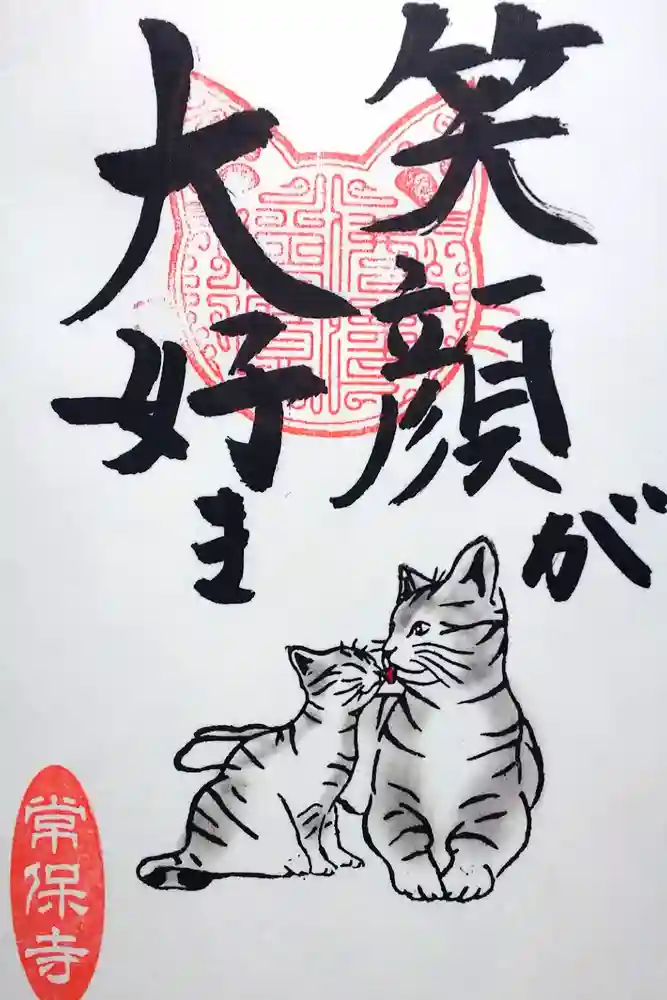 笑顔が
大好き
常保寺